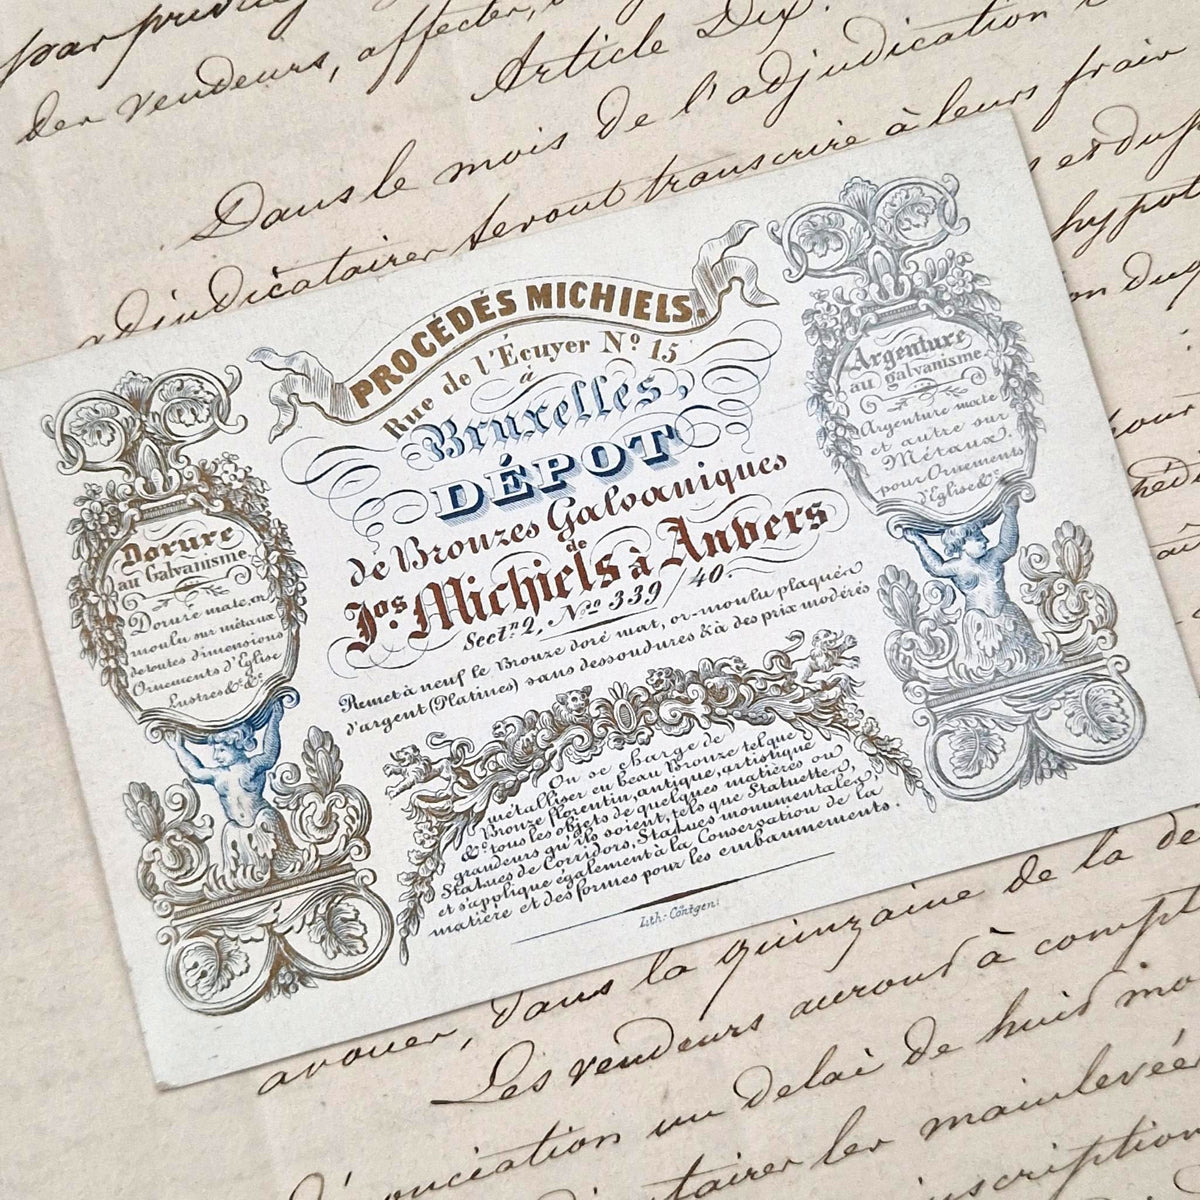 par
des vendeurs, affecter,
Article Dix.
Dans le mois de l'adjudication
adjudicataires seront transcrire à leurs frais
hypot
PROCÉDÉS MICHIELS.
Rue de l'Écuyer Nº 15
à
Bruxelles,
DÉPOT
de Bronzes Galvaniques
de
Jos Michiels à Anvers
Sectn 2, Nos 339/40.
Remet à neuf le Bronze doré mat, or-moulu plaqué en
d'argent (Platines) sans dessoudures & à des prix modérés
On se charge de
métalliser en beau Bronze tel que
Bronze florentin, antique, artistique
&c tous les objets de quelques matières ou
grandeurs qu'ils soient, tels que Statuettes,
Statues de Corridors, Statues monumentales,
et s'applique également à la Conservation de la
matière et des formes pour les embaumements.
Lith: Cöntgen
Dorure
au Galvanisme.
Dorure mate, en
moulu sur métaux
de toutes dimensions
Ornements d'Eglise
Lustres &c &c
Argenture
au galvanisme.
Argenture mate
et autre sur
Métaux.
pour Ornements
d'Eglise &c
avouer, dans la quinzaine de la
Les vendeurs auront à compt
un delai de huit
mainlevée